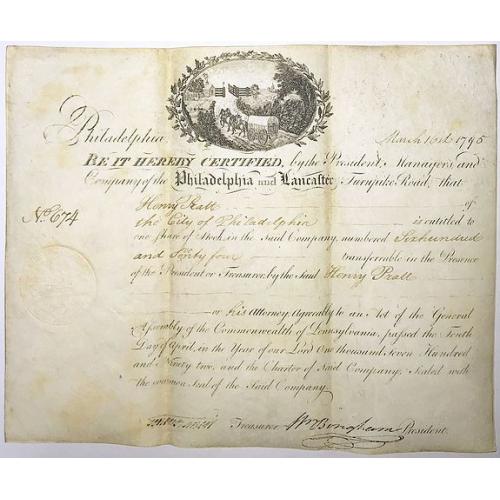 Philadelphia, March 16th 1795
BE IT HEREBY CERTIFIED, by the President, Managers, and
Company of the Philadelphia and Lancaster Turnpike Road, that
Henry Pratt of
No. 674
the City of Philadelphia is entitled to
one Share of Stock, in the Said Company, numbered Six hundred
and transferrable in the Presence
of the President or Treasurer, by the Said Henry Pratt
or his Attorney, Agreeably to an Act of the General
Assembly of the Commonwealth of Pennsylvania, passed the Ninth
Day of April, in the Year of our Lord One thousand Seven Hundred
and Ninety two, and the Charter of Said Company, Sealed with
the common Seal of the Said Company.
Treasurer Wm Bingham President.